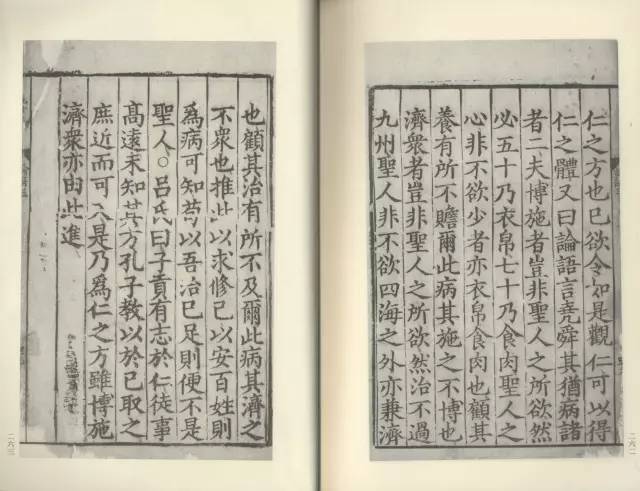 仁之方也已欲令如是觀仁可以得
仁之體又曰論語言堯舜其猶病諸
者二夫博施者豈非聖人之所欲然
必五十乃衣帛七十乃食肉聖人之
心非不欲少者亦衣帛食肉也顧其
養有所不贍爾此病其施之不博也
濟衆者豈非聖人之所欲然治不過
九州聖人非不欲四海之外亦兼濟
二六二
也顧其治有所不及爾此病其濟之
不衆也推此以求修己以安百姓則
爲病可知苟以吾治已足則便不是
聖人○呂氏曰子貢有志於仁徒事
高遠未知其方孔子教以於己取之
庶近而可入是乃爲仁之方雖博施
濟衆亦由此進
二六三